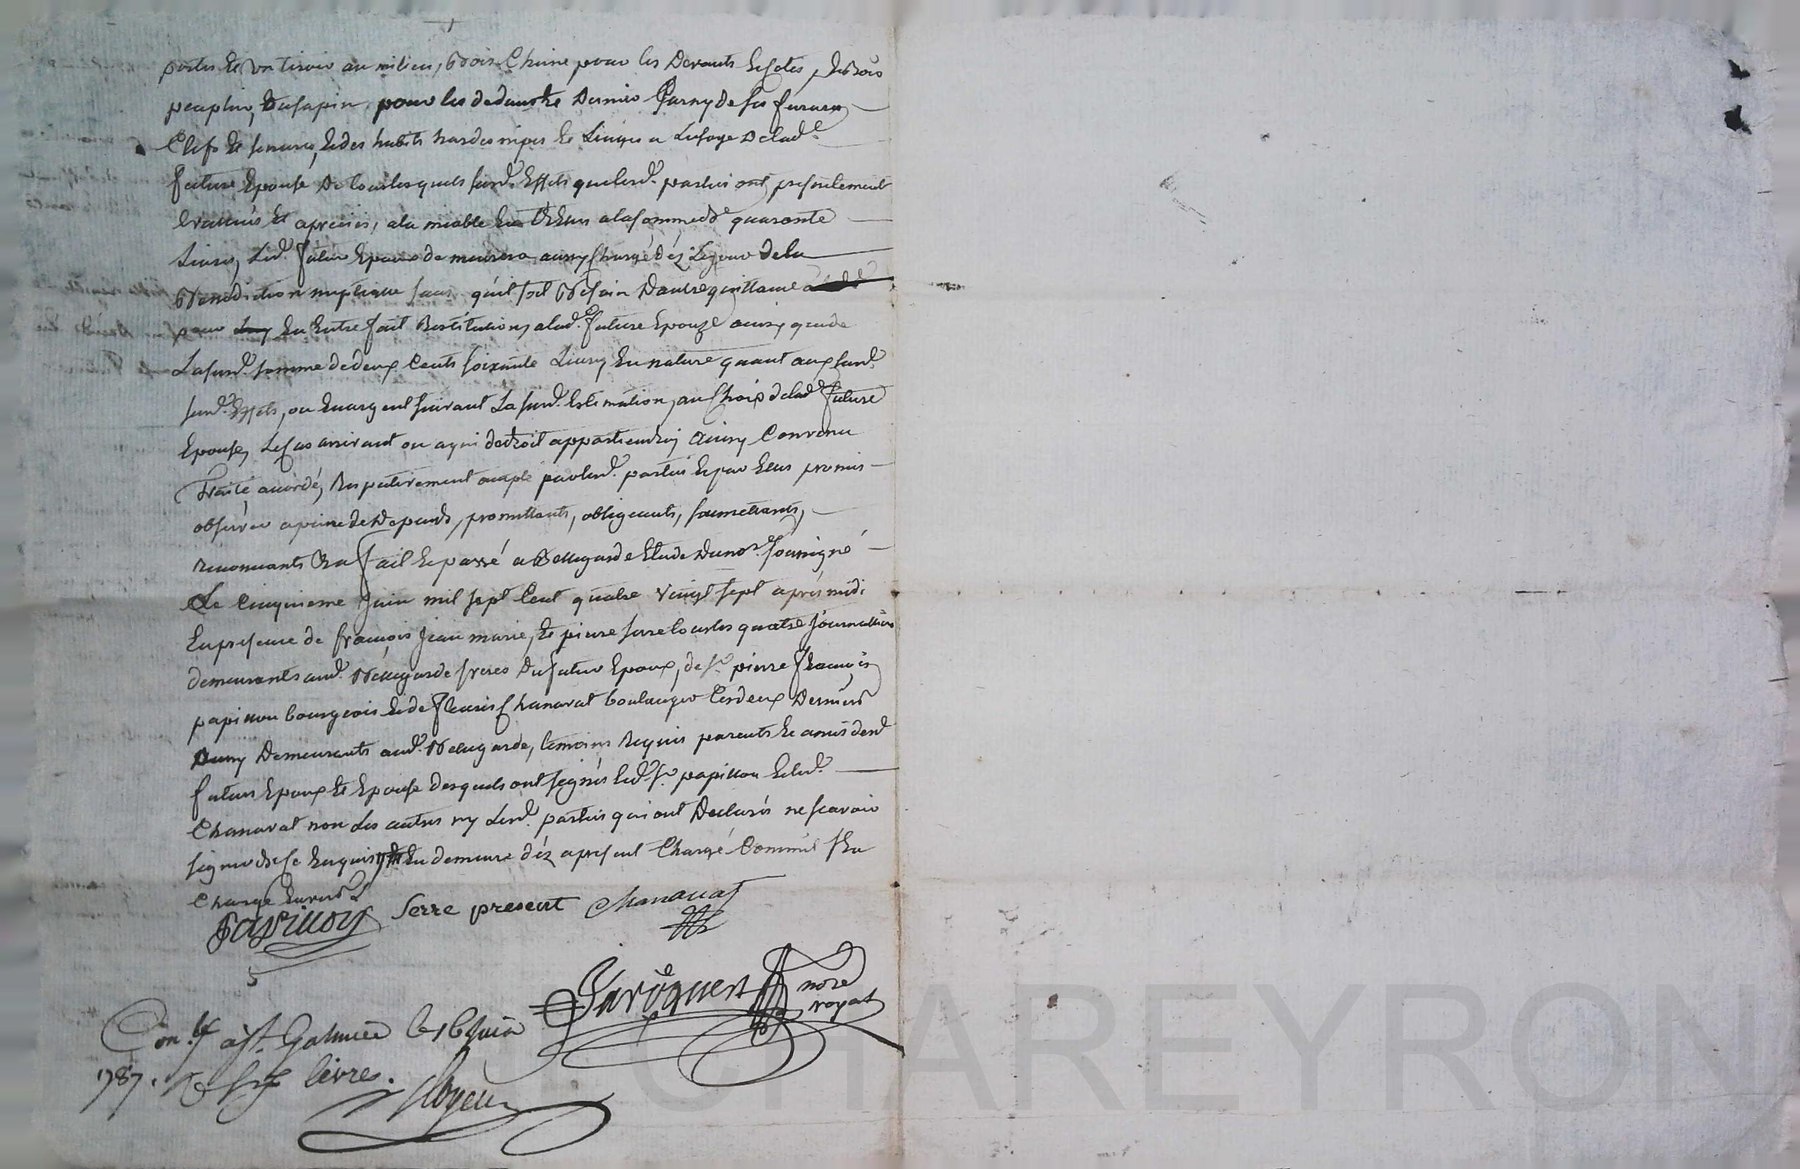 portes et un tiroir au milieu, bois chêne pour les devants et cotés, et bois
peuplier, et sapin pour les dedants Garny de ses
Clefs et serrures, et des habits hardes nipes et Linges a L'usage de lad.e
future Epouse De tous lesquels surd. Effets que lesd. parties ont presentement
Evalués et apreciés, a la miable Entr'Eux a la somme de quarante
Livres, Led. futur Epoux demeurera aussy Chargé déz Lejour de la
Benediction nuptialle sans quil soit besoin D'autre quittance
pour En Entre fait Restitution, a lad.e future Epouze ainsy que de
La surd. somme de deux Cents soixante Livres En nature quant aux surd.
surd. Effets, ou En argent suivant La surd. Estimation, au Choix de lad.e future
Epouse, Le Cas arrivant ou a qui de droit appartiendra, Ainsy Convenu
Traité acordé, Respectivement acepté par lesd. parties Et par Elles promis
observer a peine de Depends, promettants, obligeants, soumettants,
renonceants &a fait Et passé a Bellegarde Etude du no.re soussigné
Le Cinquieme Juin mil sept Cent quatre vingt sept après midi
En presence de françois Jean marie, Et pierre serre tous les quatre Journalliers
demeurants aud. Bellegarde freres Du futur Epoux, de s.r pierre françois
papillon bourgeois Et de fleuris Chanavat boulanger Cesdeux Derniers
Aussy Demeurants aud. Bellegarde, témoins Requis parents Et amis desd.
futurs Epoux Et Epouse Desquels ont signés Led. s.r papillon Et led.
Chanavat non Les autres ny Lesd. parties qui ont Declarés ne scavoir
signer de ce Enquis Et En demeure déz apresent Chargé Comme
Chargé
Papillon Serre present Chanavat
no.re
royal
Con.lé a St. Galmier le 16 Juin
1787. livres.